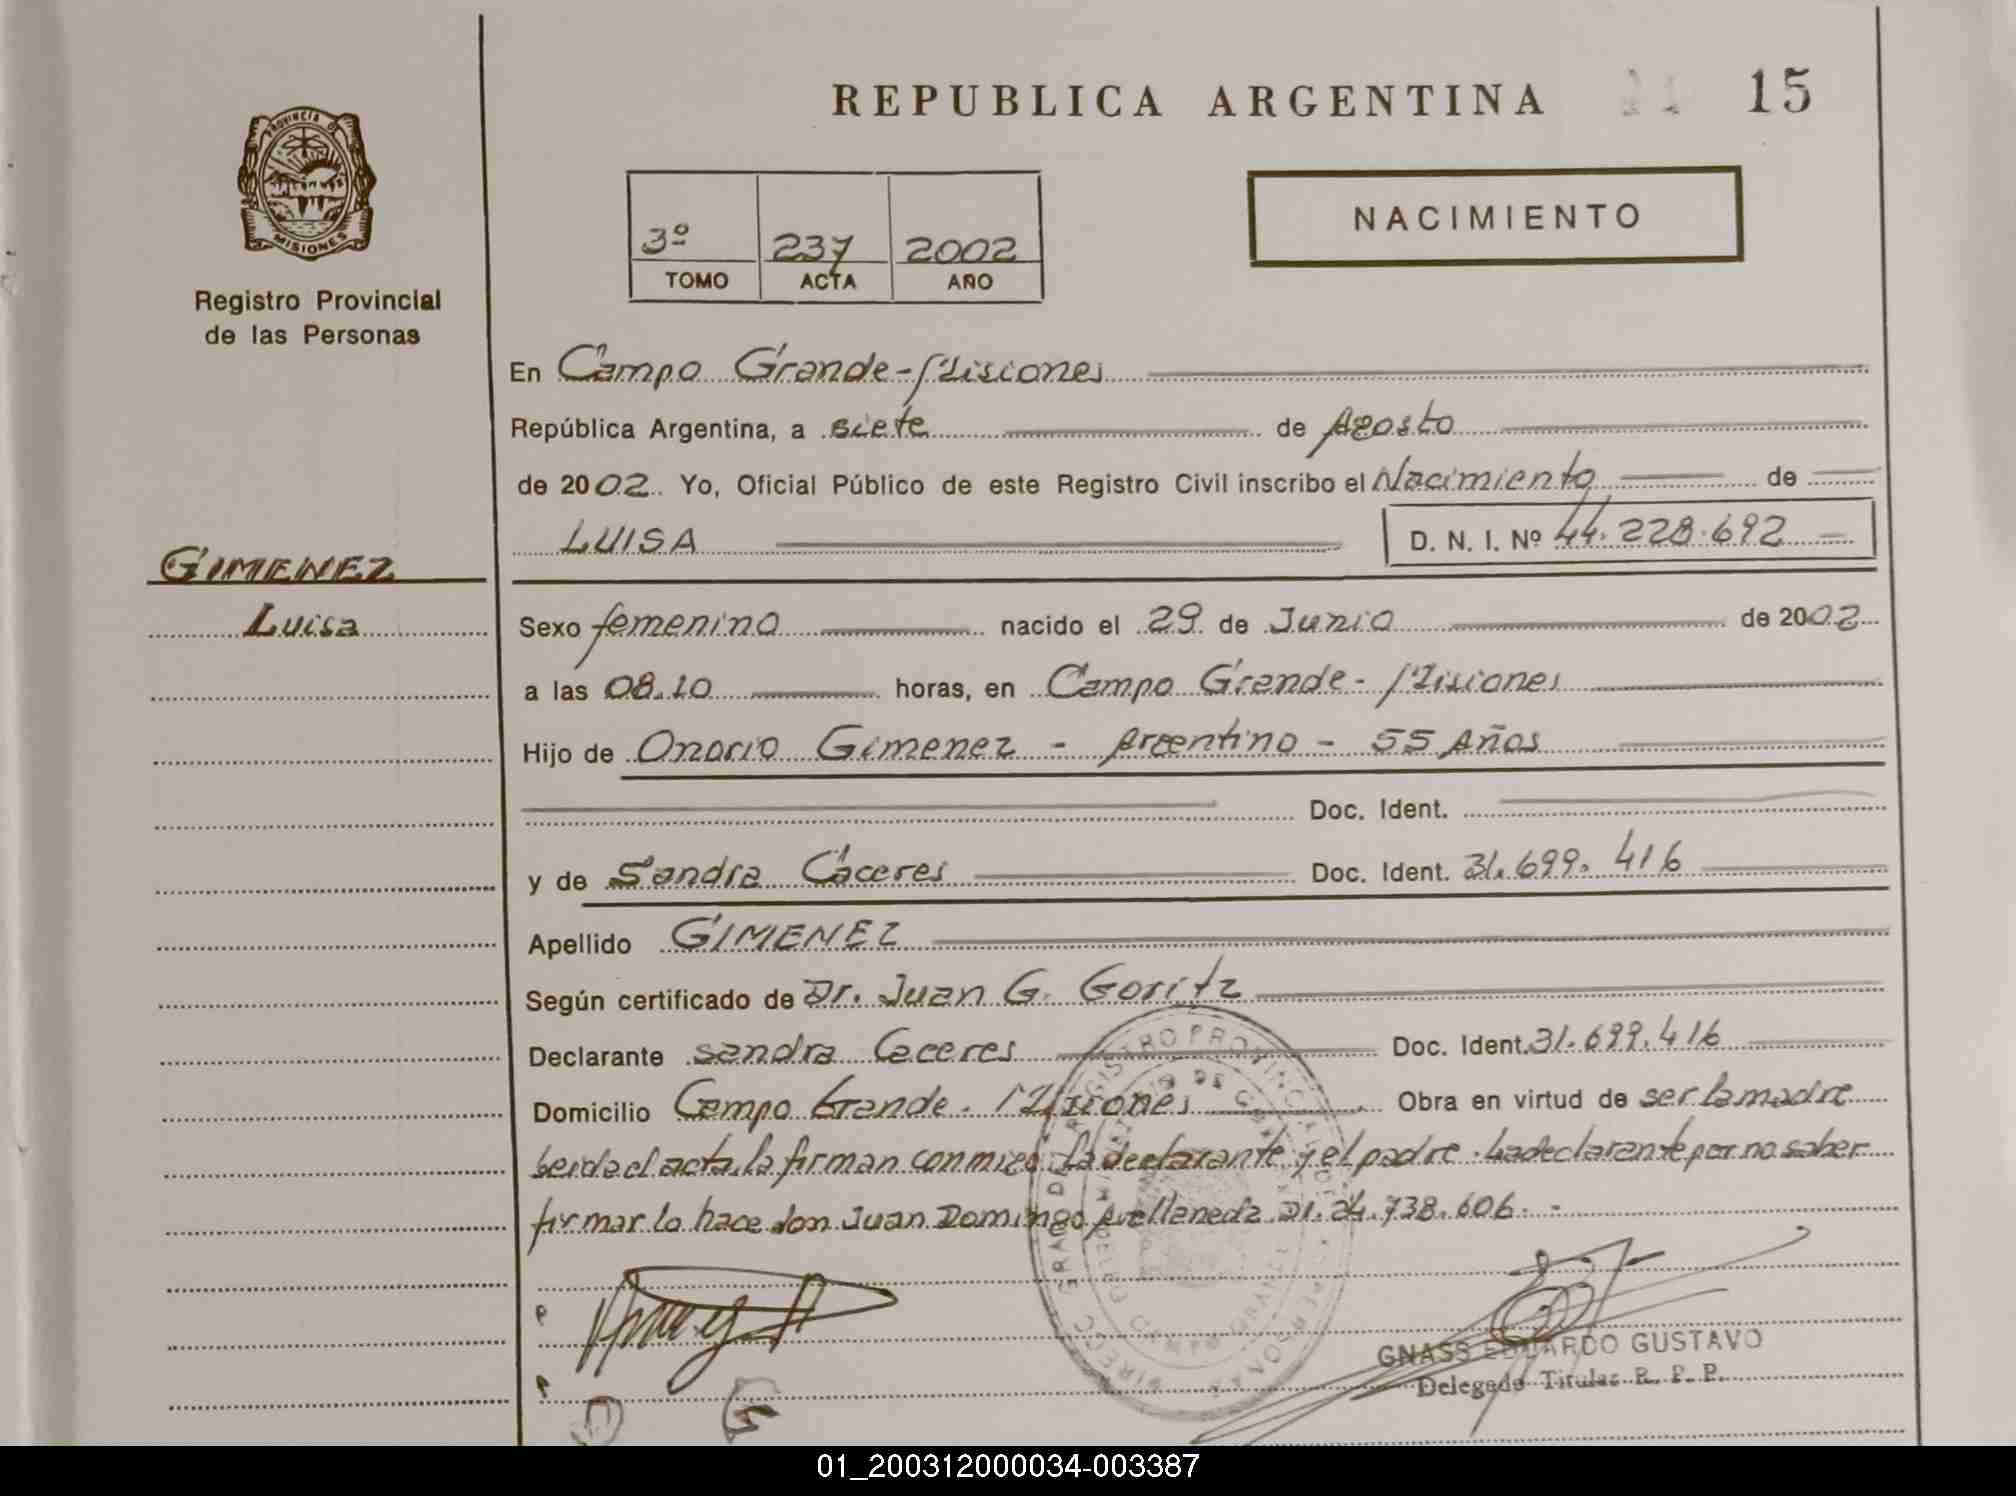 REPUBLICA ARGENTINA
15
PROVINCIA DE
MISIONES
Registro Provincial
de las Personas
3º 237 2002
TOMO ACTA AÑO
NACIMIENTO
En Campo Grande - Misiones
República Argentina, a siete de Agosto
de 2002 Yo, Oficial Público de este Registro Civil inscribo el Nacimiento de
LUISA D. N. I. Nº 44.228.692
GIMENEZ
Luisa
Sexo femenino nacido el 29 de Junio de 2002
a las 08.10 horas, en Campo Grande - Misiones
Hijo de Onorio Gimenez - Argentino - 55 Años
Doc. Ident.
y de Sandra Caceres Doc. Ident. 31.699.416
Apellido GIMENEZ
Según certificado de Dr. Juan G. Goritz
Declarante Sandra Caceres Doc. Ident. 31.699.416
Domicilio Campo Grande - Misiones Obra en virtud de ser la madre
leida el acta, la firman conmigo la declarante y el padre. La declarante por no saber
firmar lo hace don Juan Domingo Avellaneda DI. 24.738.606. -
GNASS EDUARDO GUSTAVO
Delegado Titular R. P. P.
01_200312000034-003387